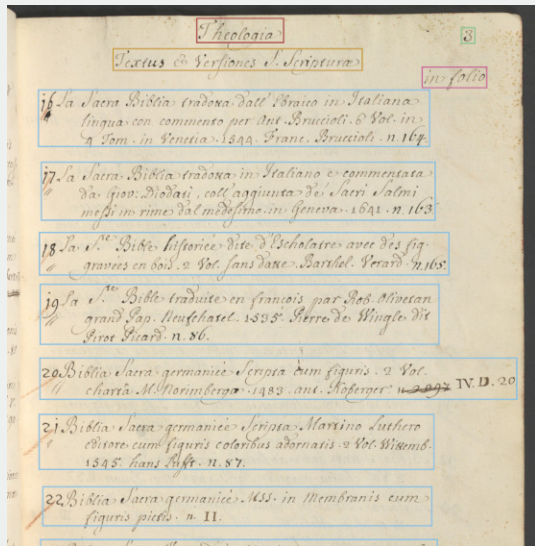 Theologia
3
Textus & Versiones S. Scripturæ
in folio
16 La Sacra Biblia tradotta dall' Ebraico in Italiana
lingua con commento per Ant. Bruccioli. 6 Vol. in
4 Tom. in Venetia. 1544. Franc. Bruccioli. n. 164.
17 La Sacra Biblia tradotta in Italiano e commentata
da Giov: Diodati, coll' aggiunta de' Sacri Salmi
messi in rime dal medesimo. in Geneva. 1641. n. 163.
18 La S.te Bible historiée dite d'Escholatre avec des fig.
gravées en bois. 2 Vol. sans datte. Barthel. Verard. n. 165.
19 La S.te Bible traduite en françois par Rob. Olivetan
grand Pap. Neufchatel. 1535. Pierre de Wingle dit
Pirot Picard. n. 86.
20 Biblia Sacra germanicè Scripta cum figuris. 2 Vol.
charta M. Norimbergæ. 1483. ant. Koberger. IV. D. 20
21 Biblia Sacra germanicè Scripta Martino Luthero
editore cum figuris coloribus adornatis. 2 Vol. Wittemb.
1545. hans Lufft. n. 87.
22 Biblia Sacra germanicè MSS. in Membranis cum
figuris pictis. n. II.